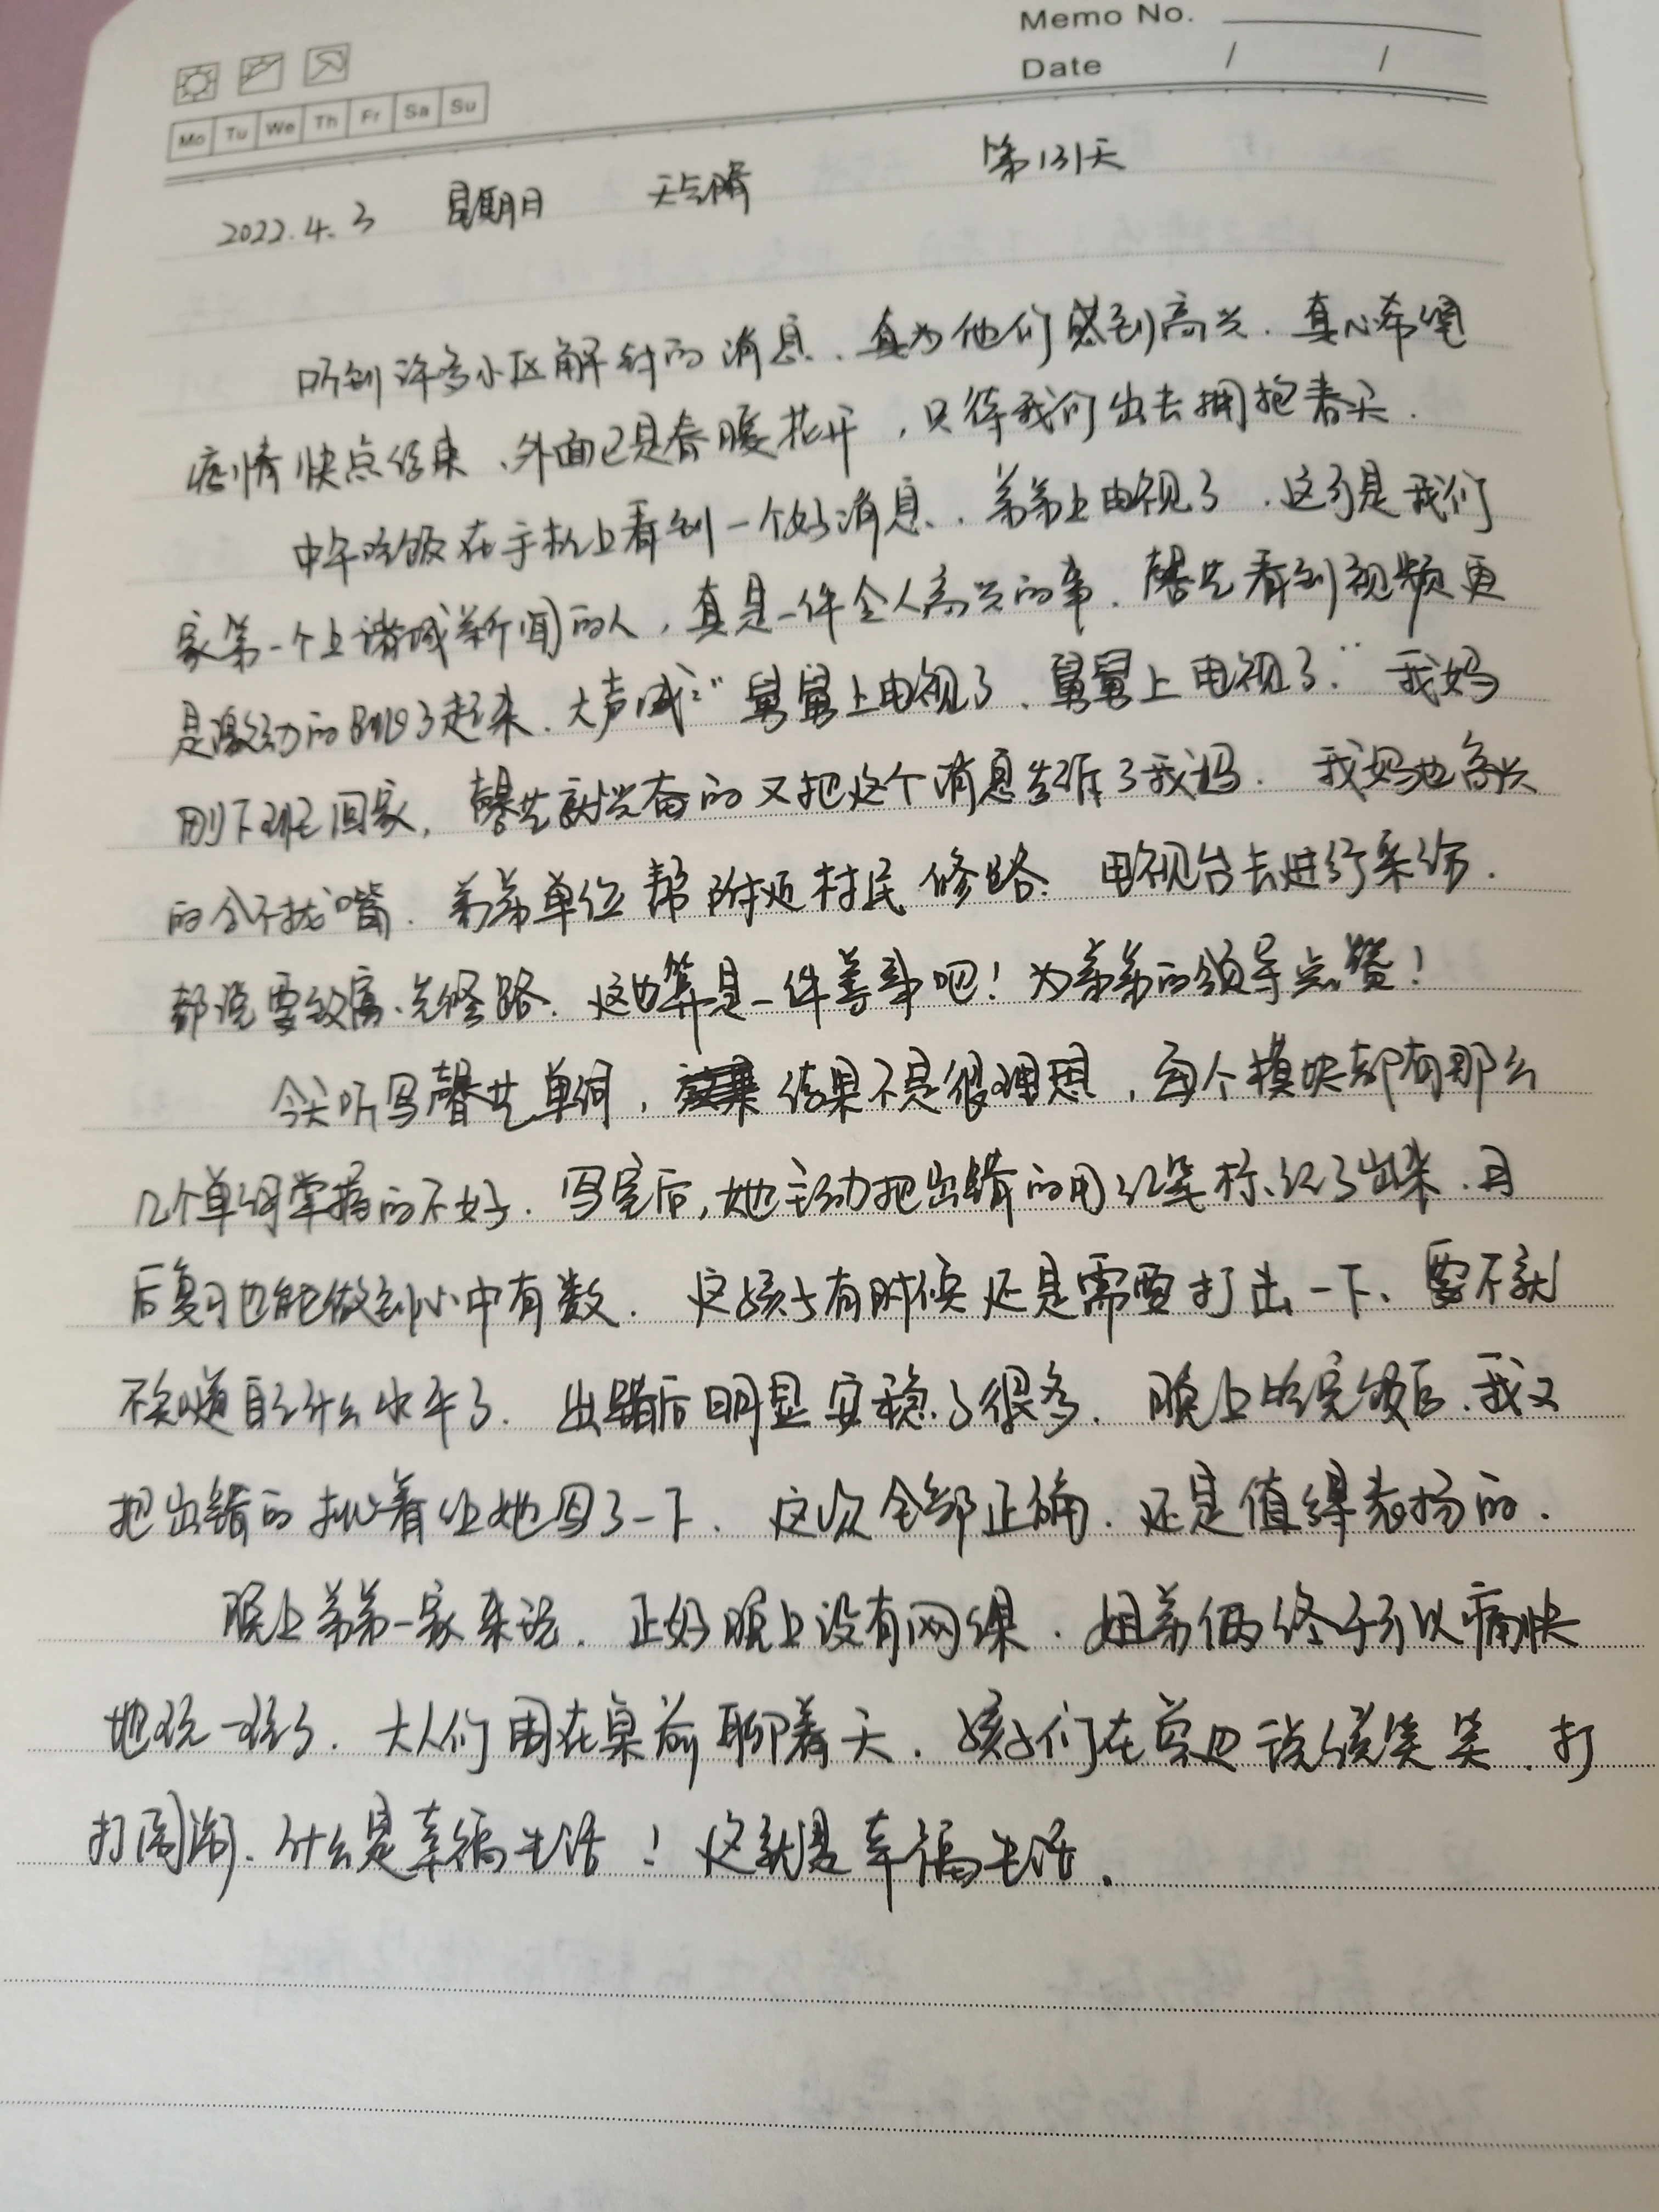 Memo No.
Date / /
Mo Tu We Th Fr Sa Su
2022.4.3 星期日 天气晴 第131天
听到许多小区解封的消息，真为他们感到高兴．真心希望
疫情快点结束、外面已是春暖花开，只待我们出去拥抱春天．
中午吃饭在手机上看到一个好消息．弟弟上电视了．这可是我们
家第一个上诸城新闻的人，真是一件令人高兴的事．馨艺看到视频更
是激动的跳了起来．大声喊：“舅舅上电视了、舅舅上电视了．” 我妈
刚下班回家，馨艺就兴奋的又把这个消息告诉了我妈．我妈也高兴
的合不拢嘴．弟弟单位帮附近村民修路．电视台去进行采访．
都说要致富、先修路．这也算是一件善事吧！为弟弟的领导点赞！
今天听写馨艺单词，结果不是很理想，每个模块都有那么
几个单词掌握的不好．写完后，她主动把出错的用红笔标记了出来．日
后复习也能做到心中有数．这孩子有时候还是需要打击一下、要不就
不知道自己什么水平了．出错后明显安稳了很多．晚上吃完饭后．我又
把出错的挑着让她写了一下．这次全部正确．还是值得表扬的．
晚上弟弟一家来玩．正好晚上没有网课．姐弟俩终于可以痛快
地玩一玩了．大人们围在桌前聊着天．孩子们在旁边说说笑笑．打
打闹闹．什么是幸福生活！这就是幸福生活．